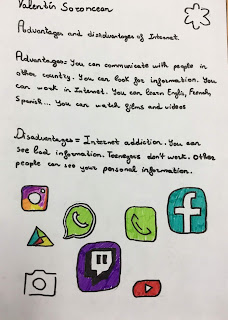 Valentín Sozoncean
Advantages and disadvantages of Internet.
Advantages= You can communicate with people in
other country. You can look for information. You
can work in Internet. You can learn Englis, French,
Spanish... You can watch films and videos
Disadvantages = Internet addiction. You can
see bad information. Teenagers don't work. Other
people can see your personal information.
f